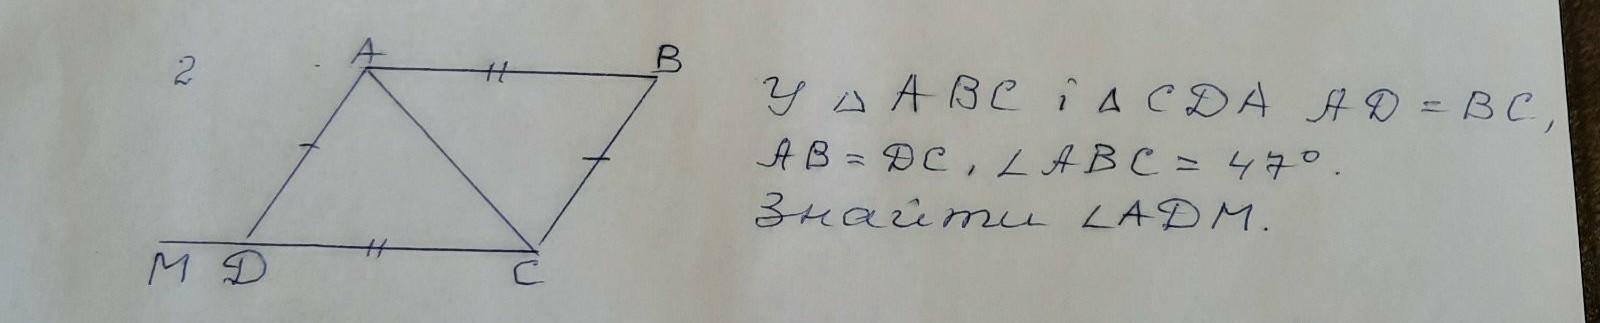 2
A
B
M D C
У △ ABC і △ CDA AD = BC,
AB = DC, ∠ABC = 47°.
Знайти ∠ADM.